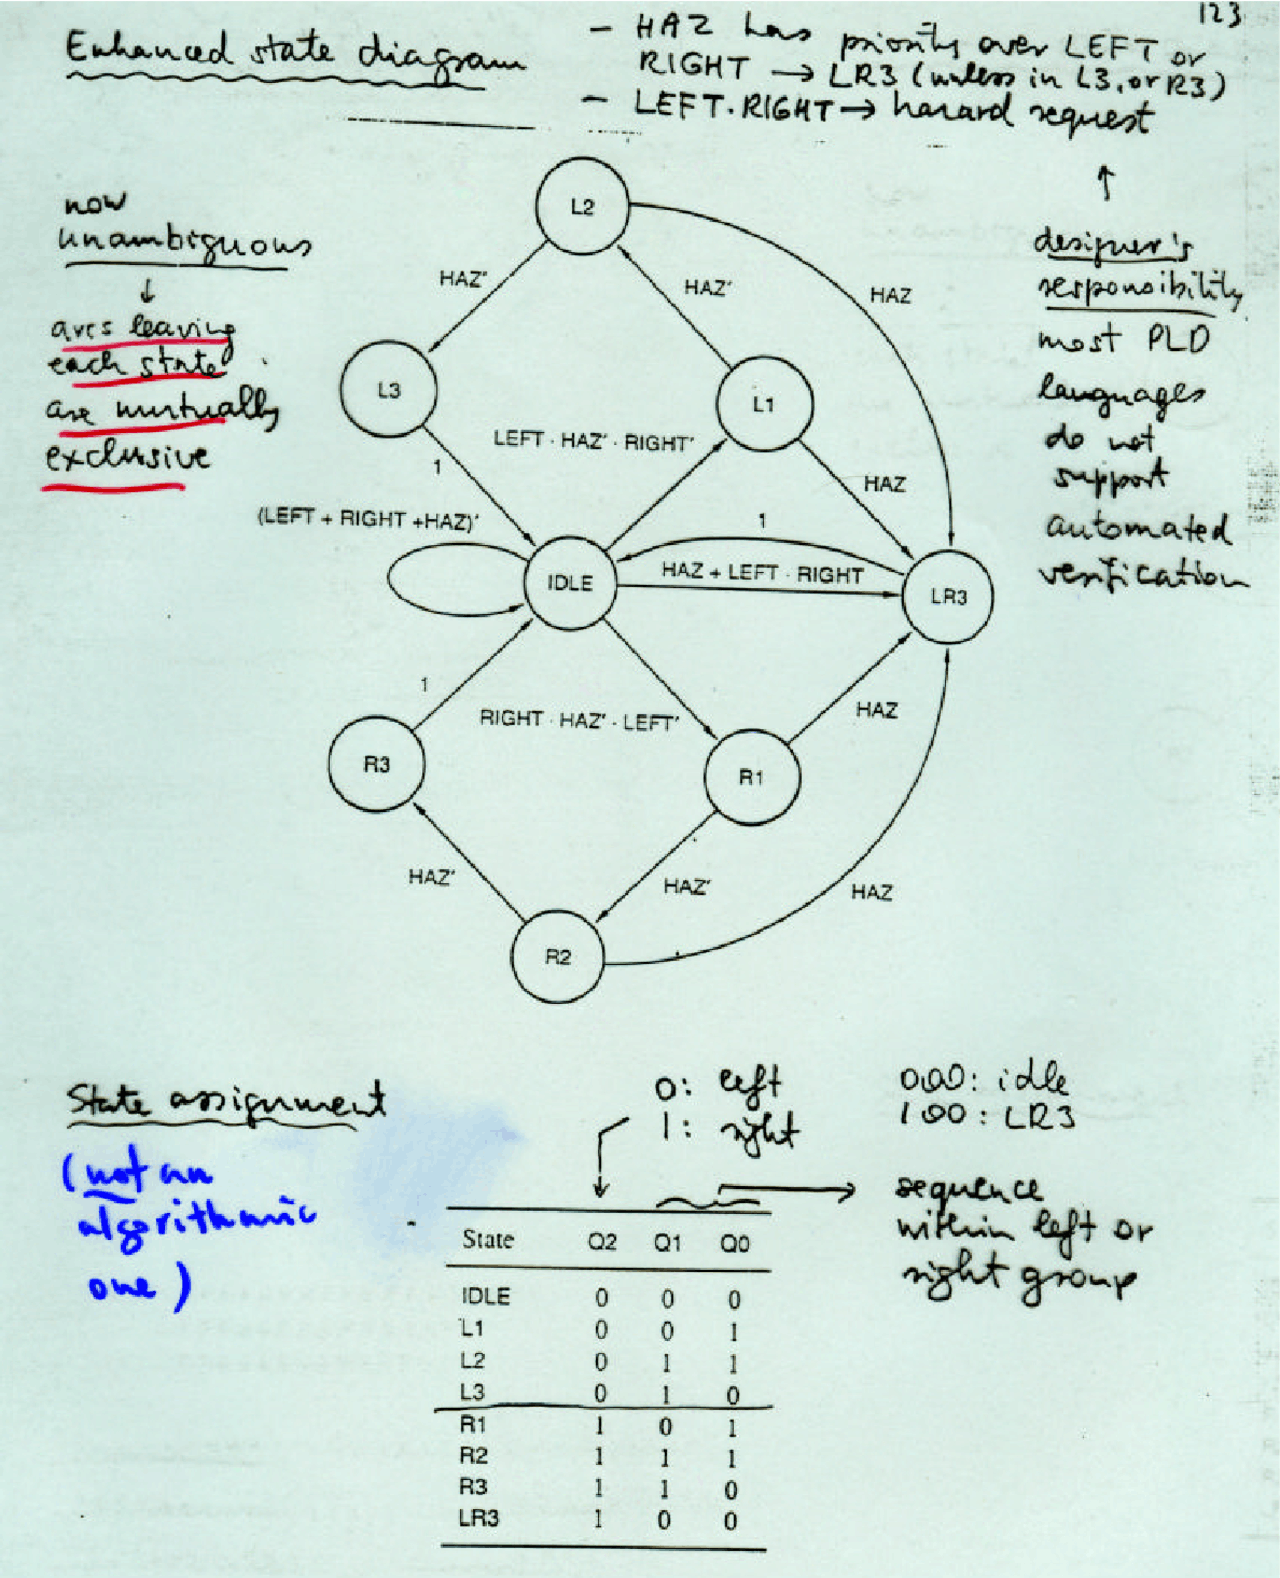 123
Enhanced state diagram
– HAZ has priority over LEFT or
RIGHT → LR3 (unless in L3, or R3)
– LEFT.RIGHT → hazard request
now
unambiguous
↓
arcs leaving
each state
are mutually
exclusive
↑
designer's
responsibility
most PLD
languages
do not
support
automated
verification
L2
HAZ'
HAZ'
HAZ
L3
L1
LEFT · HAZ' · RIGHT'
1
HAZ
(LEFT + RIGHT +HAZ)'
1
IDLE
HAZ + LEFT · RIGHT
LR3
1
RIGHT · HAZ' · LEFT'
HAZ
R3
R1
HAZ'
HAZ'
HAZ
R2
State assignment
(not an
algorithmic
one)
0: left
1: right
000: idle
100: LR3
sequence
within left or
right group
State Q2 Q1 Q0
IDLE 0 0 0
L1 0 0 1
L2 0 1 1
L3 0 1 0
R1 1 0 1
R2 1 1 1
R3 1 1 0
LR3 1 0 0